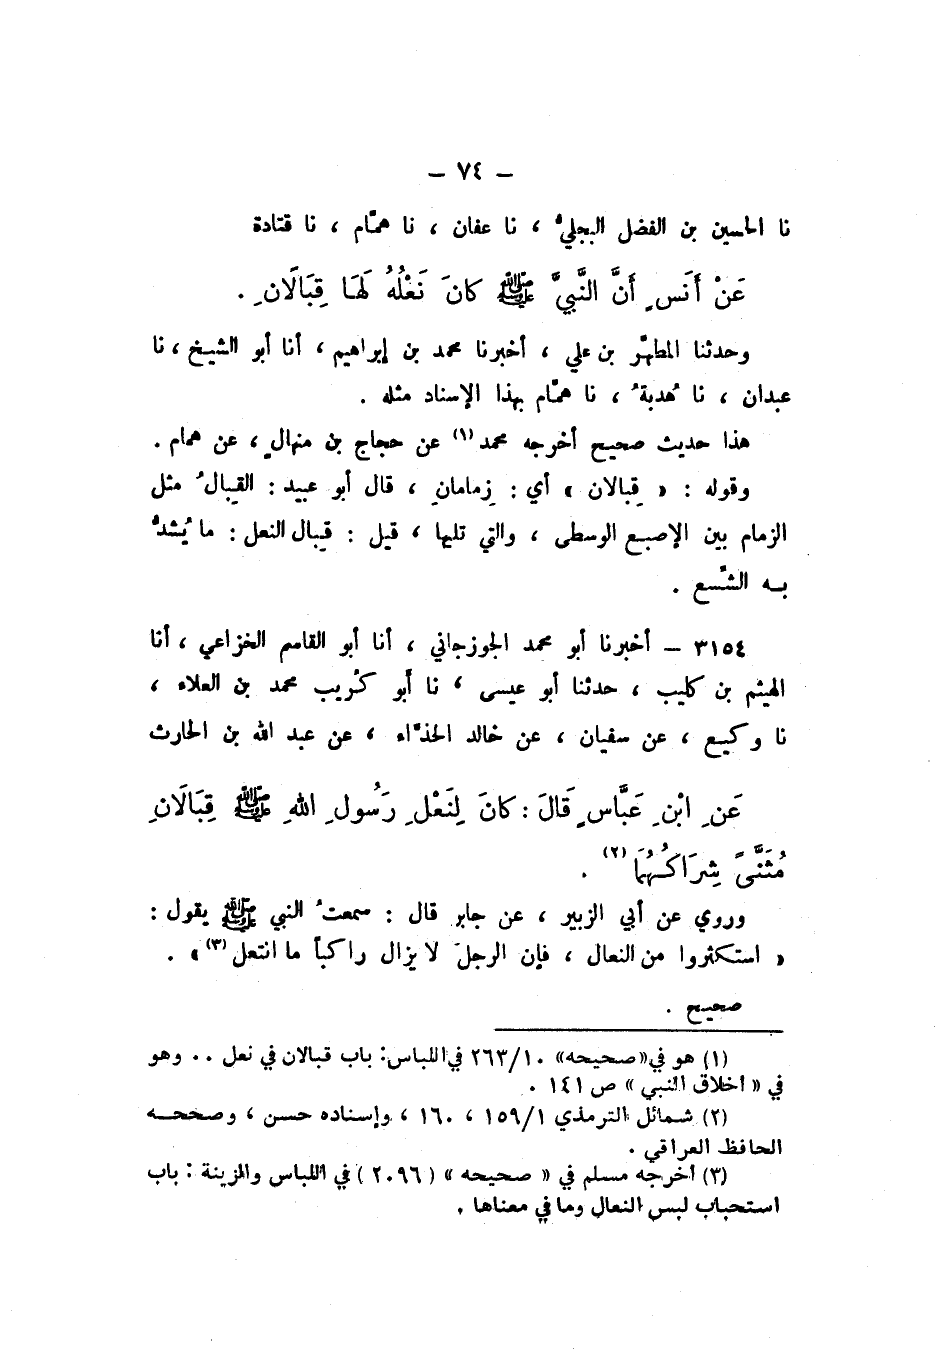 – ٧٤ –
نا الحسين بن الفضل البجليُّ ، نا عفان ، نا همَّام ، نا قتادة
عَنْ أَنَسٍ أَنَّ النَّبِيَّ ﷺ كَانَ نَعْلُهُ لَهَا قِبَالَانِ .
وحدثنا المطهَّر بن علي ، أخبرنا محمد بن إبراهيم ، أنا أبو الشيخ ، نا
عبدان ، نا هُدبةُ ، نا همَّام بهذا الإسناد مثله .
هذا حديث صحيح أخرجه محمد (١) عن حجاج بن منهالٍ ، عن همام .
وقوله : « قِبالان » أي : زِمامانِ ، قال أبو عبيد : القِبالُ مثل
الزمام بين الإصبع الوسطى ، والتي تليها ، قيل : قِبال النعل : ما يُشدُّ
بـه الشَّسع .
٣١٥٤ – أخبرنا أبو محمد الجوزجاني ، أنا أبو القاسم الخزاعي ، أنا
الهيثم بن كليب ، حدثنا أبو عيسى ، نا أبو كُريب محمد بن العلاء ،
نا وكيع ، عن سفيان ، عن خالد الحذَّاء ، عن عبد الله بن الحارث
عَنِ ابْنِ عَبَّاسٍ قَالَ : كَانَ لِنَعْلِ رَسُولِ اللهِ ﷺ قِبَالَانِ
مُثَنًّى شِرَاكُهُمَا (٢) .
وروي عن أبي الزبير ، عن جابر قال : سمعتُ النبي ﷺ يقول :
« استكثروا من النعال ، فإن الرجلَ لا يزال راكباً ما انتعل (٣) » .
صحيح .
(١) هو في «صحيحه» ٢٦٣/١٠ في اللباس: باب قبالان في نعل .. وهو
في « أخلاق النبي » ص ١٤١ .
(٢) شمائل الترمذي ١٥٩/١ ، ١٦٠ ، وإسناده حسن ، وصححـه
الحافظ العراقي .
(٣) أخرجه مسلم في « صحيحه » ( ٢٠٩٦ ) في اللباس والزينة : باب
استحباب لبس النعال وما في معناها .